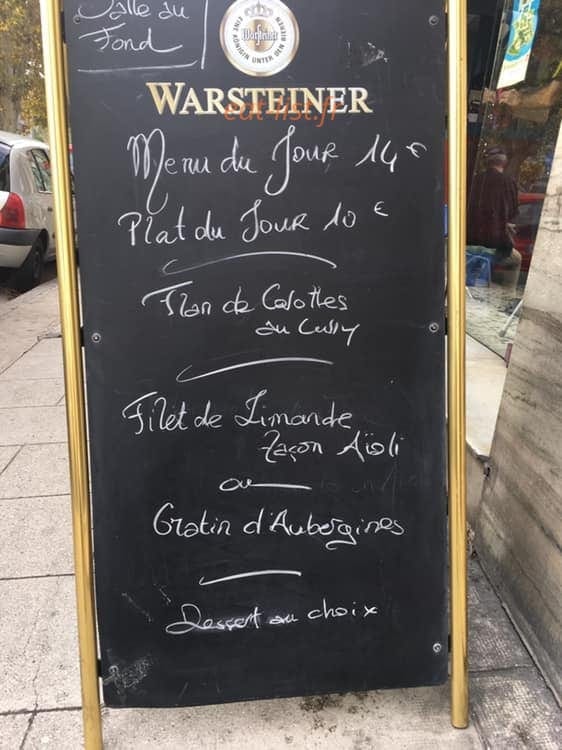 Salle du
Fond
Warsteiner
EINE KÖNIGIN UNTER DEN BIEREN
WARSTEINER
eat-list.fr
Menu du Jour 14€
Plat du Jour 10€
Flan de Carottes
au Curry
Filet de Limande
façon Aïoli
ou
Gratin d'Aubergines
Dessert au choix